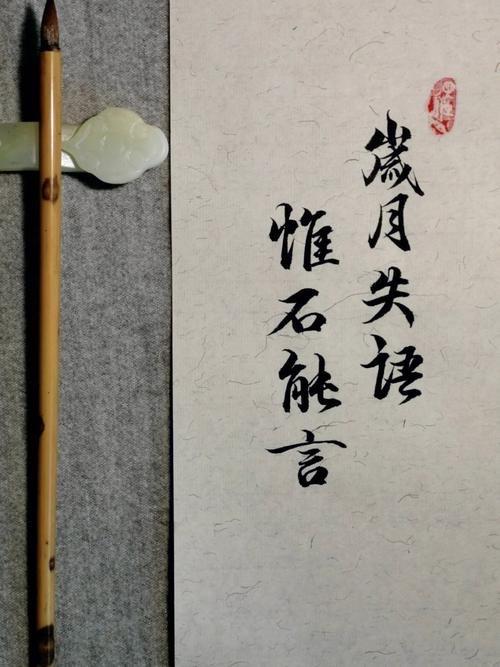 歲月失語
惟石能言